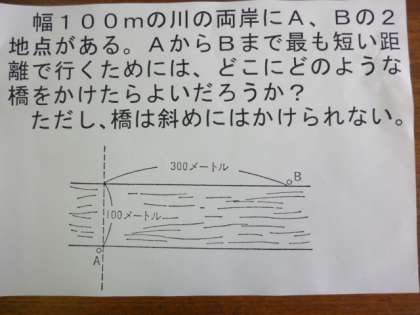 幅１００ｍの川の両岸にＡ、Ｂの２
地点がある。ＡからＢまで最も短い距
離で行くためには、どこにどのような
橋をかけたらよいだろうか？
ただし、橋は斜めにはかけられない。
300メートル
B
100メートル
A